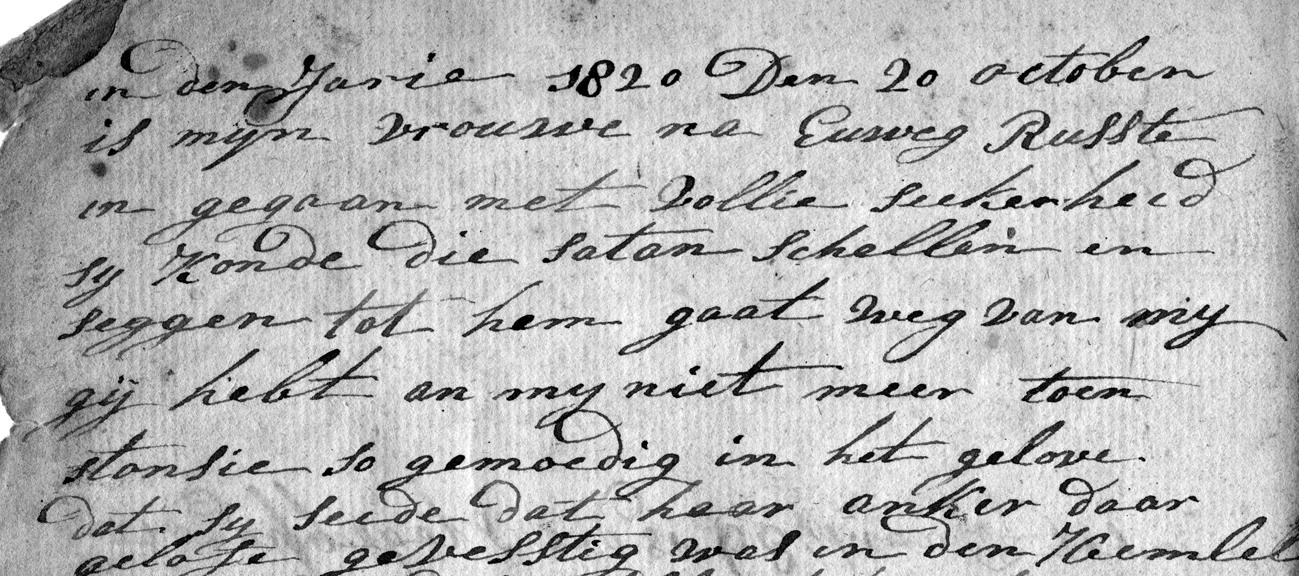 in den Jarie 1820 Den 20 october
is mijn vrouwe na Euweg Russte
in gegaan met vollie seekerheid
sy Konde die satan schellen en
seggen tot hem gaat weg van my
gij hebt an my niet meer toen
stonsie so gemoedig in het gelove
dat sy seide dat haar anker daar
gevesstig was in den Heemlel